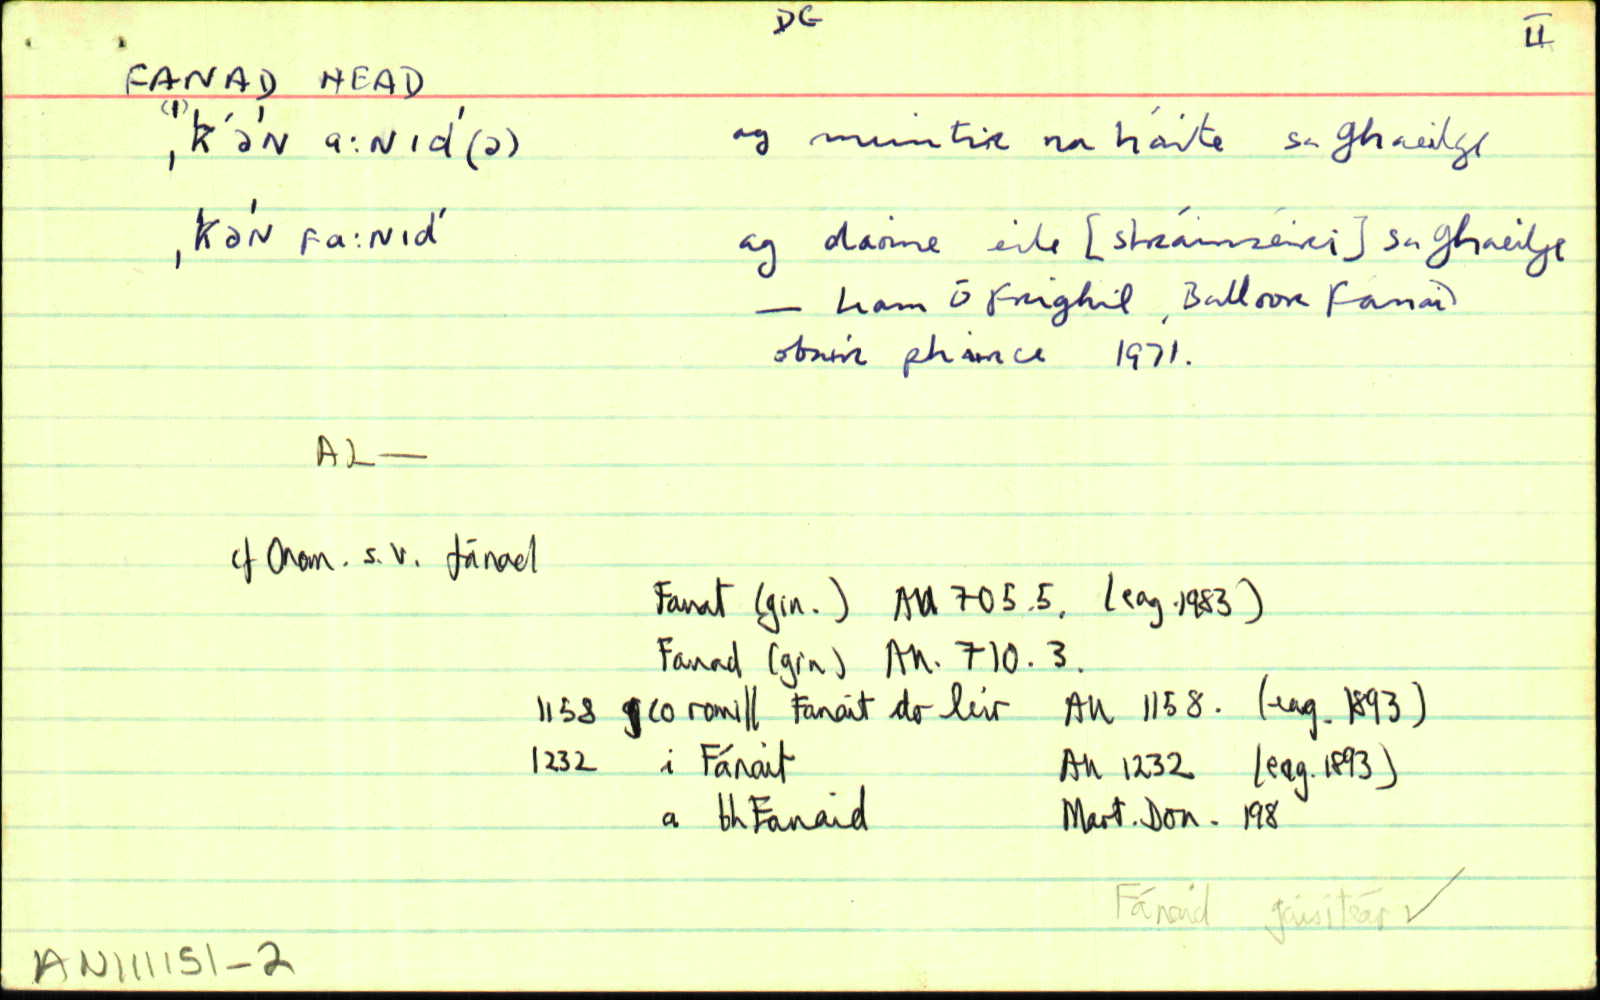 DG
II
FANAD HEAD
(1) ˌḱən a:Nıd́(ə) ag muintir na háite sa Ghaeilge
ˌḱəN Fa:Nıd́ ag daoine eile [stráinséirí] sa Ghaeilge
— Liam Ó Frighil, Balloor Fánaid
obair pháirce 1971.
AL —
cf Onom. s.v. fánad
Fanat (gin.) AU 705.5. (eag. 1983)
Fanad (gin) AU. 710.3.
1158 gco romill Fanait do leir AU 1158. (eag. 1893)
1232 i Fánait AU 1232 (eag. 1893)
a bhFanaid Mart. Don. 198
Fánaid gáisitéar ✓
AN111151-2